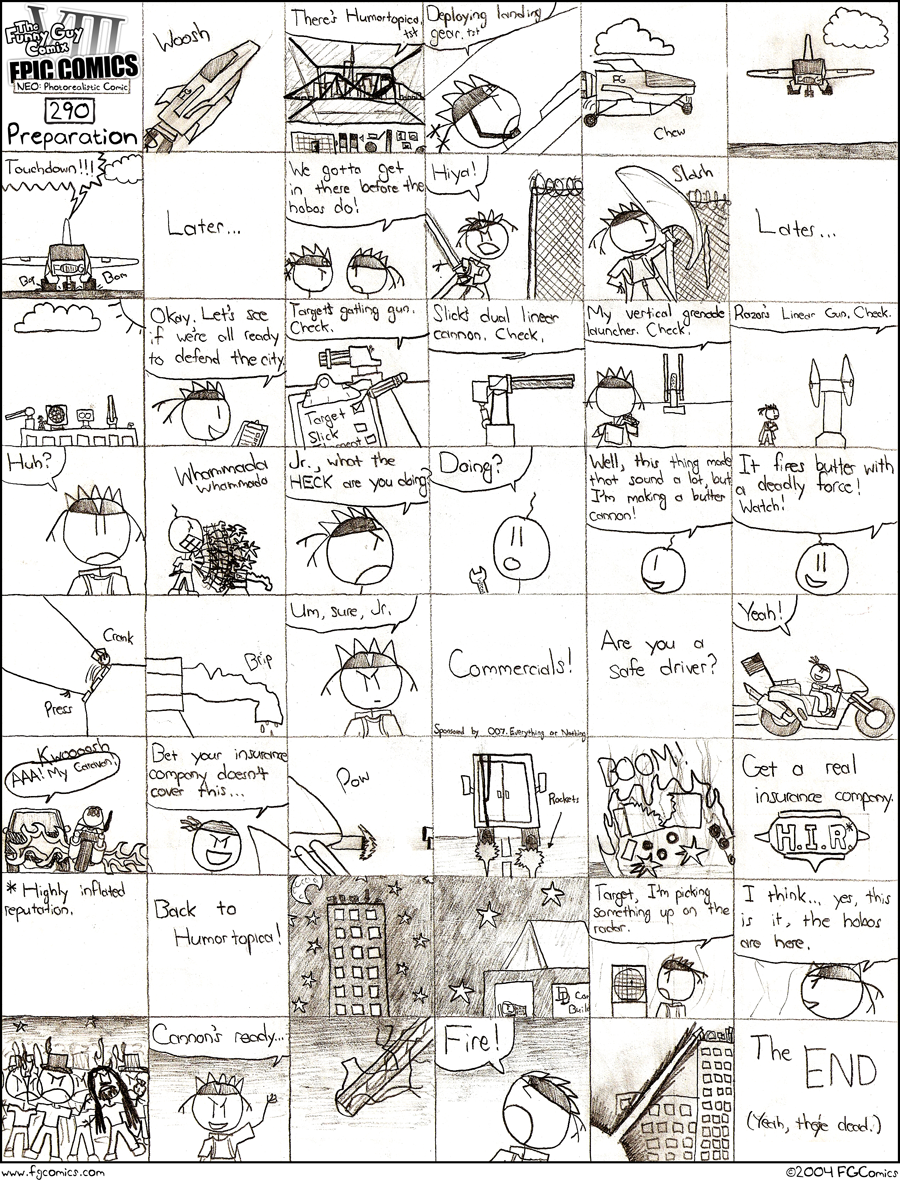 The
Funny Guy
Comix
VIII
EPIC COMICS
NEO: Photorealistic Comic
290
Preparation
Woosh
There's Humortopica.
tst
Deploying landing
gear. tst
FG
Chew
Touchdown!!!
Bom
Later...
We gotta get
in there before the
hobos do!
Hiya!
Slash
Later...
Okay. Let's see
if we're all ready
to defend the city.
Target's gatling gun.
Check.
Target
Slick
Slick's dual linear
cannon. Check.
My vertical grenade
launcher. Check.
Razor's Linear Gun. Check.
Huh?
Whammada
whammada
Jr., what the
HECK are you doing?
Doing?
Well, this thing made
that sound a lot, but
I'm making a butter
cannon!
It fires butter with
a deadly force!
Watch!
Crank
Press
Drip
Um, sure, Jr.
Commercials!
Sponsored by 007: Everything or Nothing
Are you a
safe driver?
Yeah!
Kwoooosh
AAA! My Caravan!
Bet your insurance
company doesn't
cover this...
Pow
Rockets
BOOM!
Get a real
insurance company.
H.I.R.*
* Highly inflated
reputation.
Back to
Humortopica!
Target, I'm picking
something up on the
radar.
I think... yes, this
is it, the hobos
are here.
Cannon's ready...
Fire!
The
END
(Yeah, they're dead.)
www.fgcomics.com
©2004 FGComics